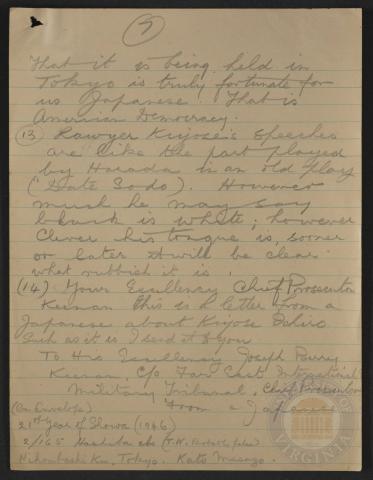 7
That it is being held in
Tokyo is truly fortunate for
us Japanese. That is
American Democracy.
(13) Lawyer Kiyose's speeches
are like the part played
by Harada in an old play
("Date Sodo"). However
much he may say
black is white; however
clever his tongue is, sooner
or later it will be clear
what rubbish it is.
(14) Your Excellency Chief Prosecutor
Keenan this is a letter from a
Japanese about Kiyose Ichiro
Such as it is I send it to you
To His Excellency Joseph Berry
Keenan, C/o Far East International
Military Tribunal, Chief Prosecutor
From a Japanese
(On Envelope)
21st Year of Showa (1946)
2/165
Nihonbashi Ku, Tokyo. Kato
VIRGINIA